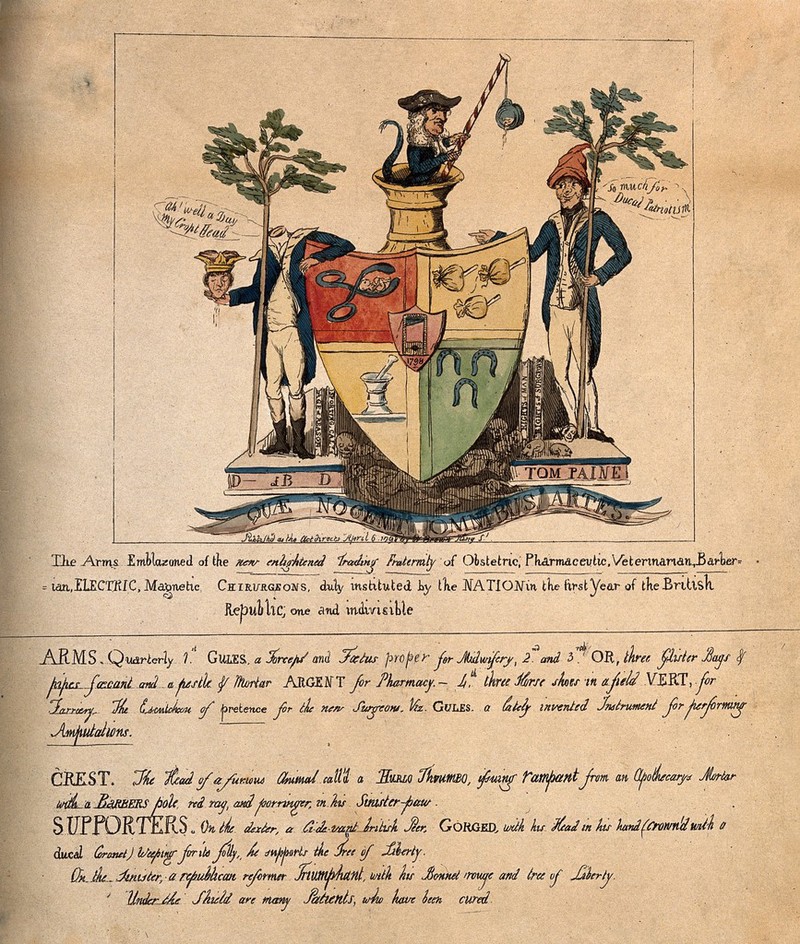 Ah! well a Day
my Cropt Head
so much for
Ducal Patriotism
1798
RIGHTS of MAN
D— of B D
TOM PAINE
QUÆ NOCENT OMNIBUS ARTES.
Published as the Act directs April 6 1798 by
The Arms Emblazoned of the new enlightened Trading Fraternity of Obstetric, Pharmaceutic, Veterinarian, Barber=
=ian, ELECTRIC, Magnetic CHIRURGEONS, duly instituted by the NATION in the first Year of the British
Republic, one and indivisible
ARMS. Quarterly 1.st GULES, a Forceps and Fœtus proper for Midwifery, 2nd and 3rd OR, three Glister Bags &
pipes fœcant and a pestle & Mortar ARGENT for Pharmacy.— 4.th three Horse shoes in a field VERT, for
Farriery. The Escutcheon of pretence for the new Surgeons. Viz. GULES. a lately invented Instrument for performing
Amputations.
CREST. The Head of a furious Animal call'd a HURLO THRUMBO, issuing rampant from an Apothecarys Mortar
with a BARBERS pole, red rag, and porringer, in his Sinister-paw.
SUPPORTERS. On the dexter, a Ci-de-vant british Peer, GORGED, with his Head in his hand (crown'd with a
ducal Coronet) Weeping for its folly, he supports the Tree of Liberty.
On the Sinister, a republican reformer Triumphant, with his Bonnet rouge and tree of Liberty.
Under the Shield are many Patients, who have been cured